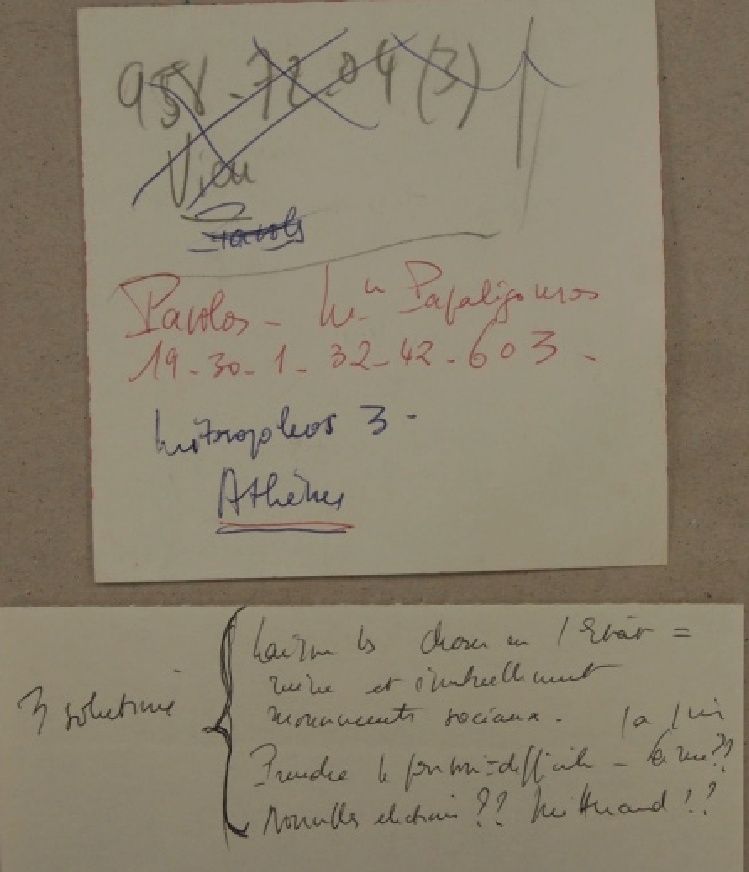 958-72.04 (3)
Vieu
Pavlos
Pavlos - Mr Papaligouras
19-30-1-32-42-603-
Mitropoleos 3 -
Athènes
3 solutions
Laisser les choses en l'état =
ruine et éventuellement
mouvements sociaux.
Prendre le pouvoir = difficile -
Nouvelles élections ?? Mitterrand !?